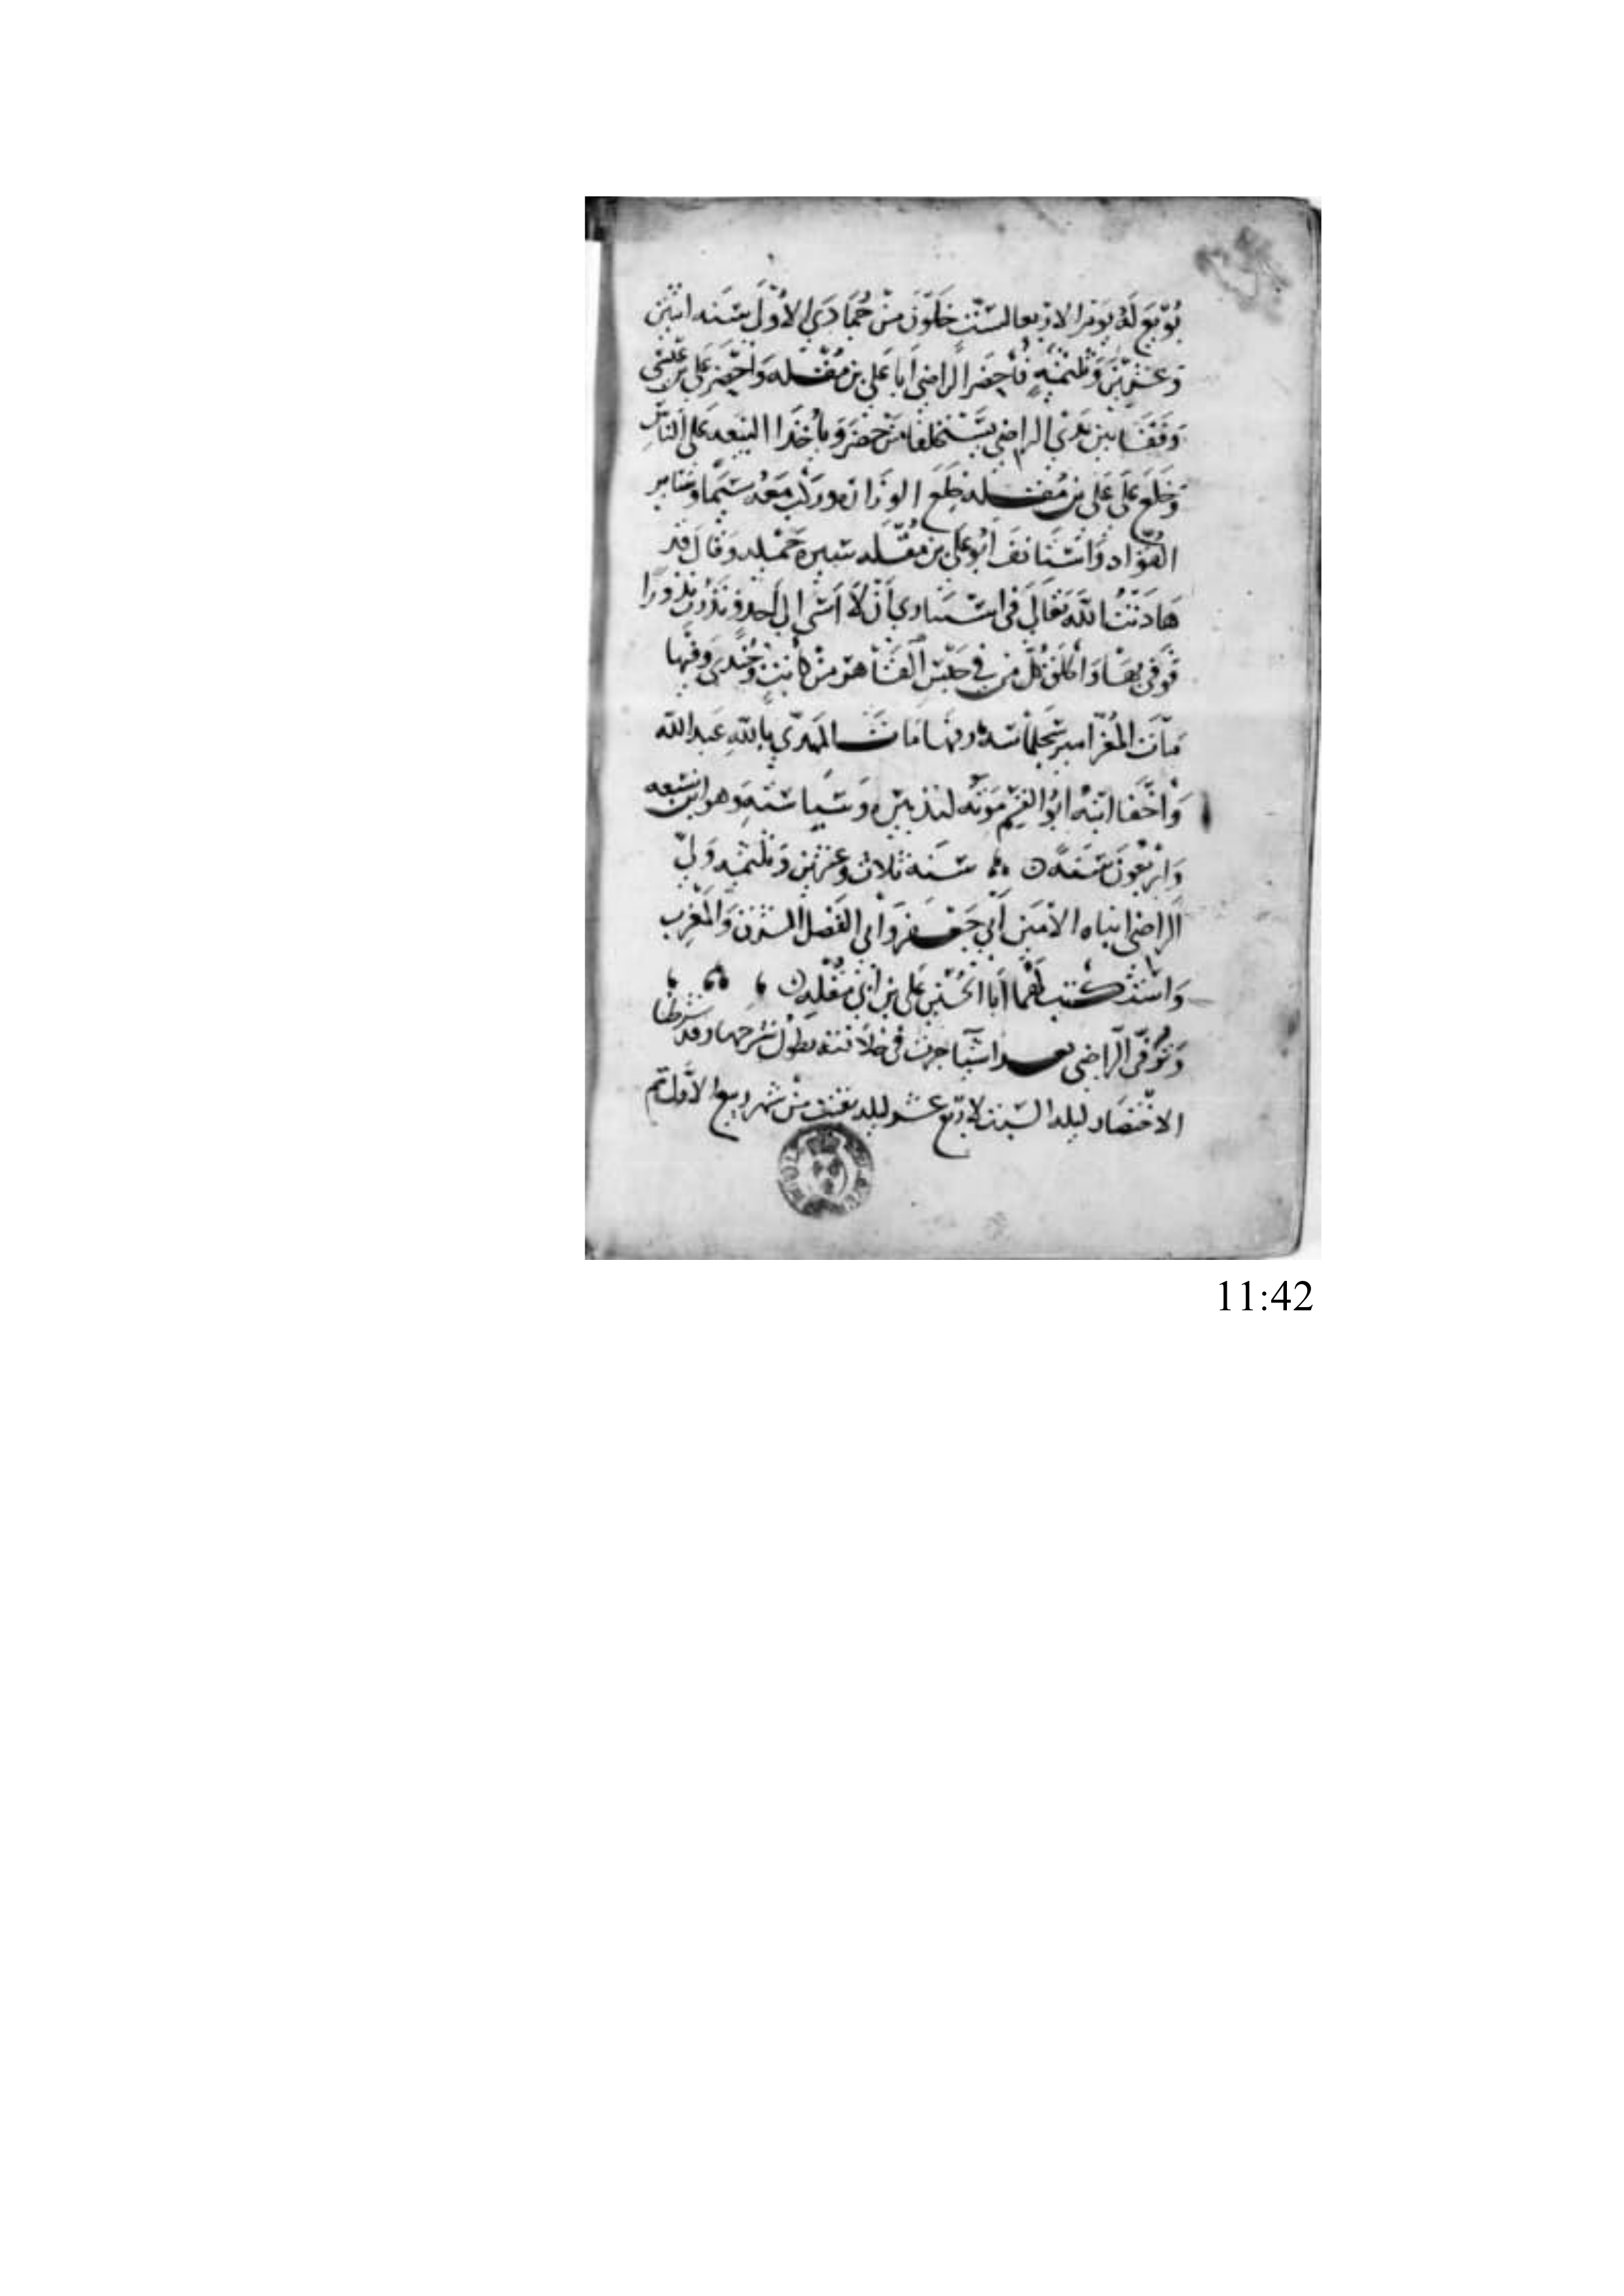 بُوْيِعَ لَهُ يَوْمَ الاربعا لسَتٍّ خَلَوْنَ مِنْ جُمَادَي الأُوْلَى سَنَه اثنين
وَعشرْينَ وَثلثمئهٍ فَأُحضَرَ الراضِي ابَا عَلي بن مُقْله وَاحْضر عَلي بن عيسَى
وَقفَا بَيْن يَدَيْ الراضي يَسْتخلفا مَنْ حَضَرَ وَيأْخُذا البَيْعه عَلى النَّاس
وَخلَع عَلَى عَلى بن مُقله خِلَع الوزَاره وركب مَعْهُ سيما وسَاير
القُوّاد وَاستَانَفَ ابُو عَلي بن مُقْله سيره جَميله وَقالَ قد
هَادَنْتُ اللَّه تَعَالَى فى استتاري أَنْ لاَ اسى الي احد وَنذَرْت نذورًا
فوفى بهَا وَاطلق كُلّ مَن في حَبْسِ القَاهر مِنْ كاتبٍ وَجُندى وَفيْهَا
مَاتَ المُعْزّ امير سجلماسَه وَفيهَا مَاتَ المهدّي بِاللَّهِ عبد الله
وَاخفَا ابنْهُ ابُو القسِم مَوتَه لتدبيره وَسَيَاسَتهِ وهو ابن تسعه
وَارْبعُونَ سَنهً ه سَنه ثلاث وعشرين وَثلثمئه وَلّى
الراضى ابناه الامَين أَبي جَعْفر وَأبي الفَضل المشرق وَالمَغْرِب
وَاستكْتب لَهُمَا ابَا الحُسَين عَلي بن ابي مُقْله ه
وَتُوُفّى الرّاضى بعد اشيَا جرت فى خلافته يطولْ شرحها وقد شرطنا
الاختصَار ليله السّبت لاربع عشر ليله بقيت مِنْ شهر ربيع الاول تم
11:42